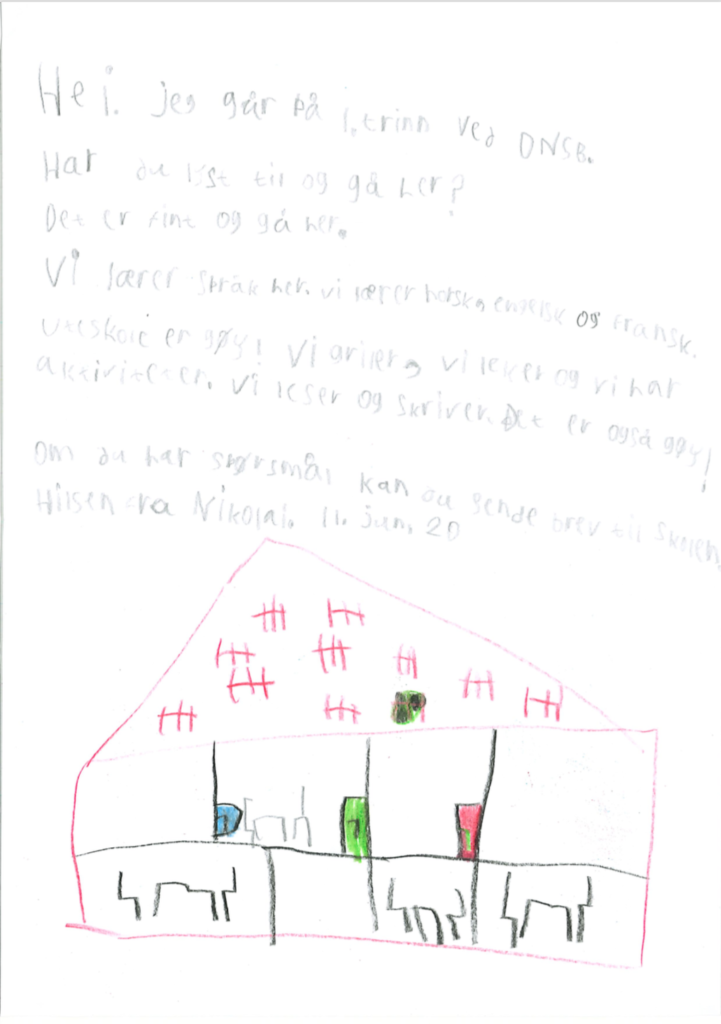 Hei. jeg går på 1. trinn ved DNSB.
Har du lyst til og gå her?
Det er fint og gå her.
Vi lærer språk her. vi lærer norsk, engelsk og fransk.
Uteskole er gøy! Vi griller, vi leker og vi har
aktiviteter. Vi leser og skriver. Det er også gøy!
Om du har spørsmål kan du sende brev til skolen.
Hilsen fra Nikolai. 11. jun. 20